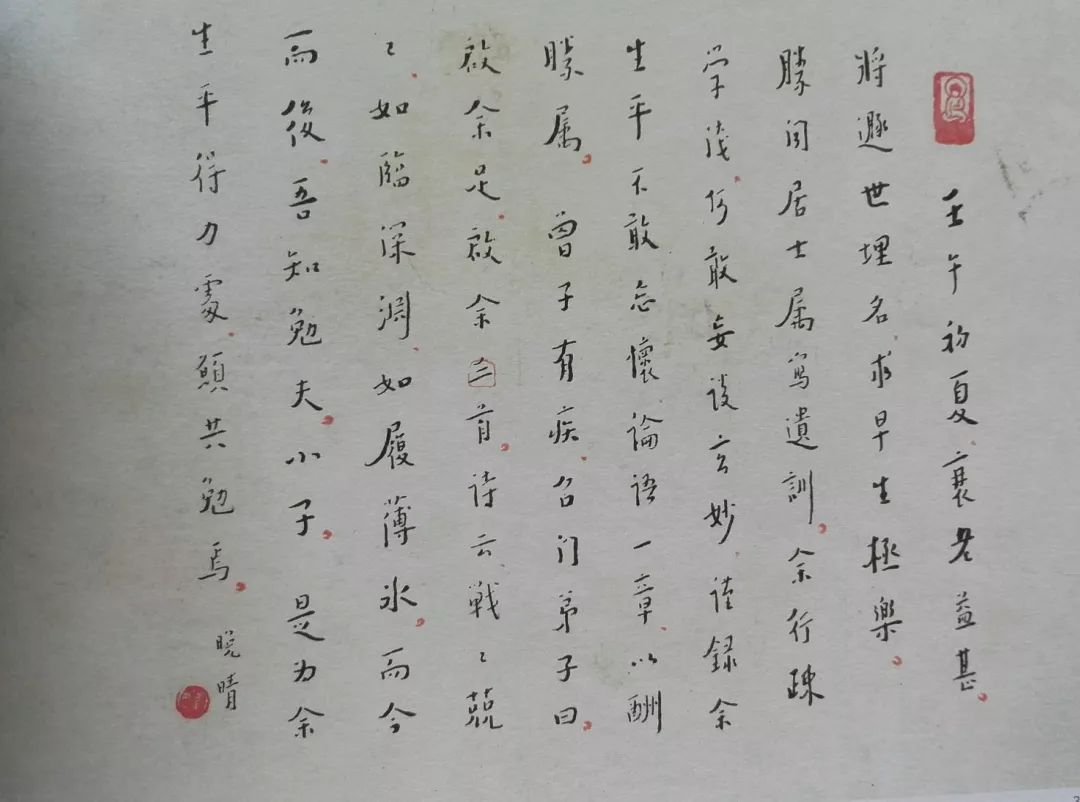 壬午初夏衰老益甚
將遯世埋名求早生極樂
勝闻居士属寫遺訓余行疎
学浅何敢妄談玄妙謹録余
生平不敢忘懷論語一章以酬
勝属曾子有疾召门弟子曰
啟余足啟余三首诗云戦〻兢
〻如臨深淵如履薄冰而今
而後吾知勉夫小子是为余
生平得力處願共勉焉
晚晴